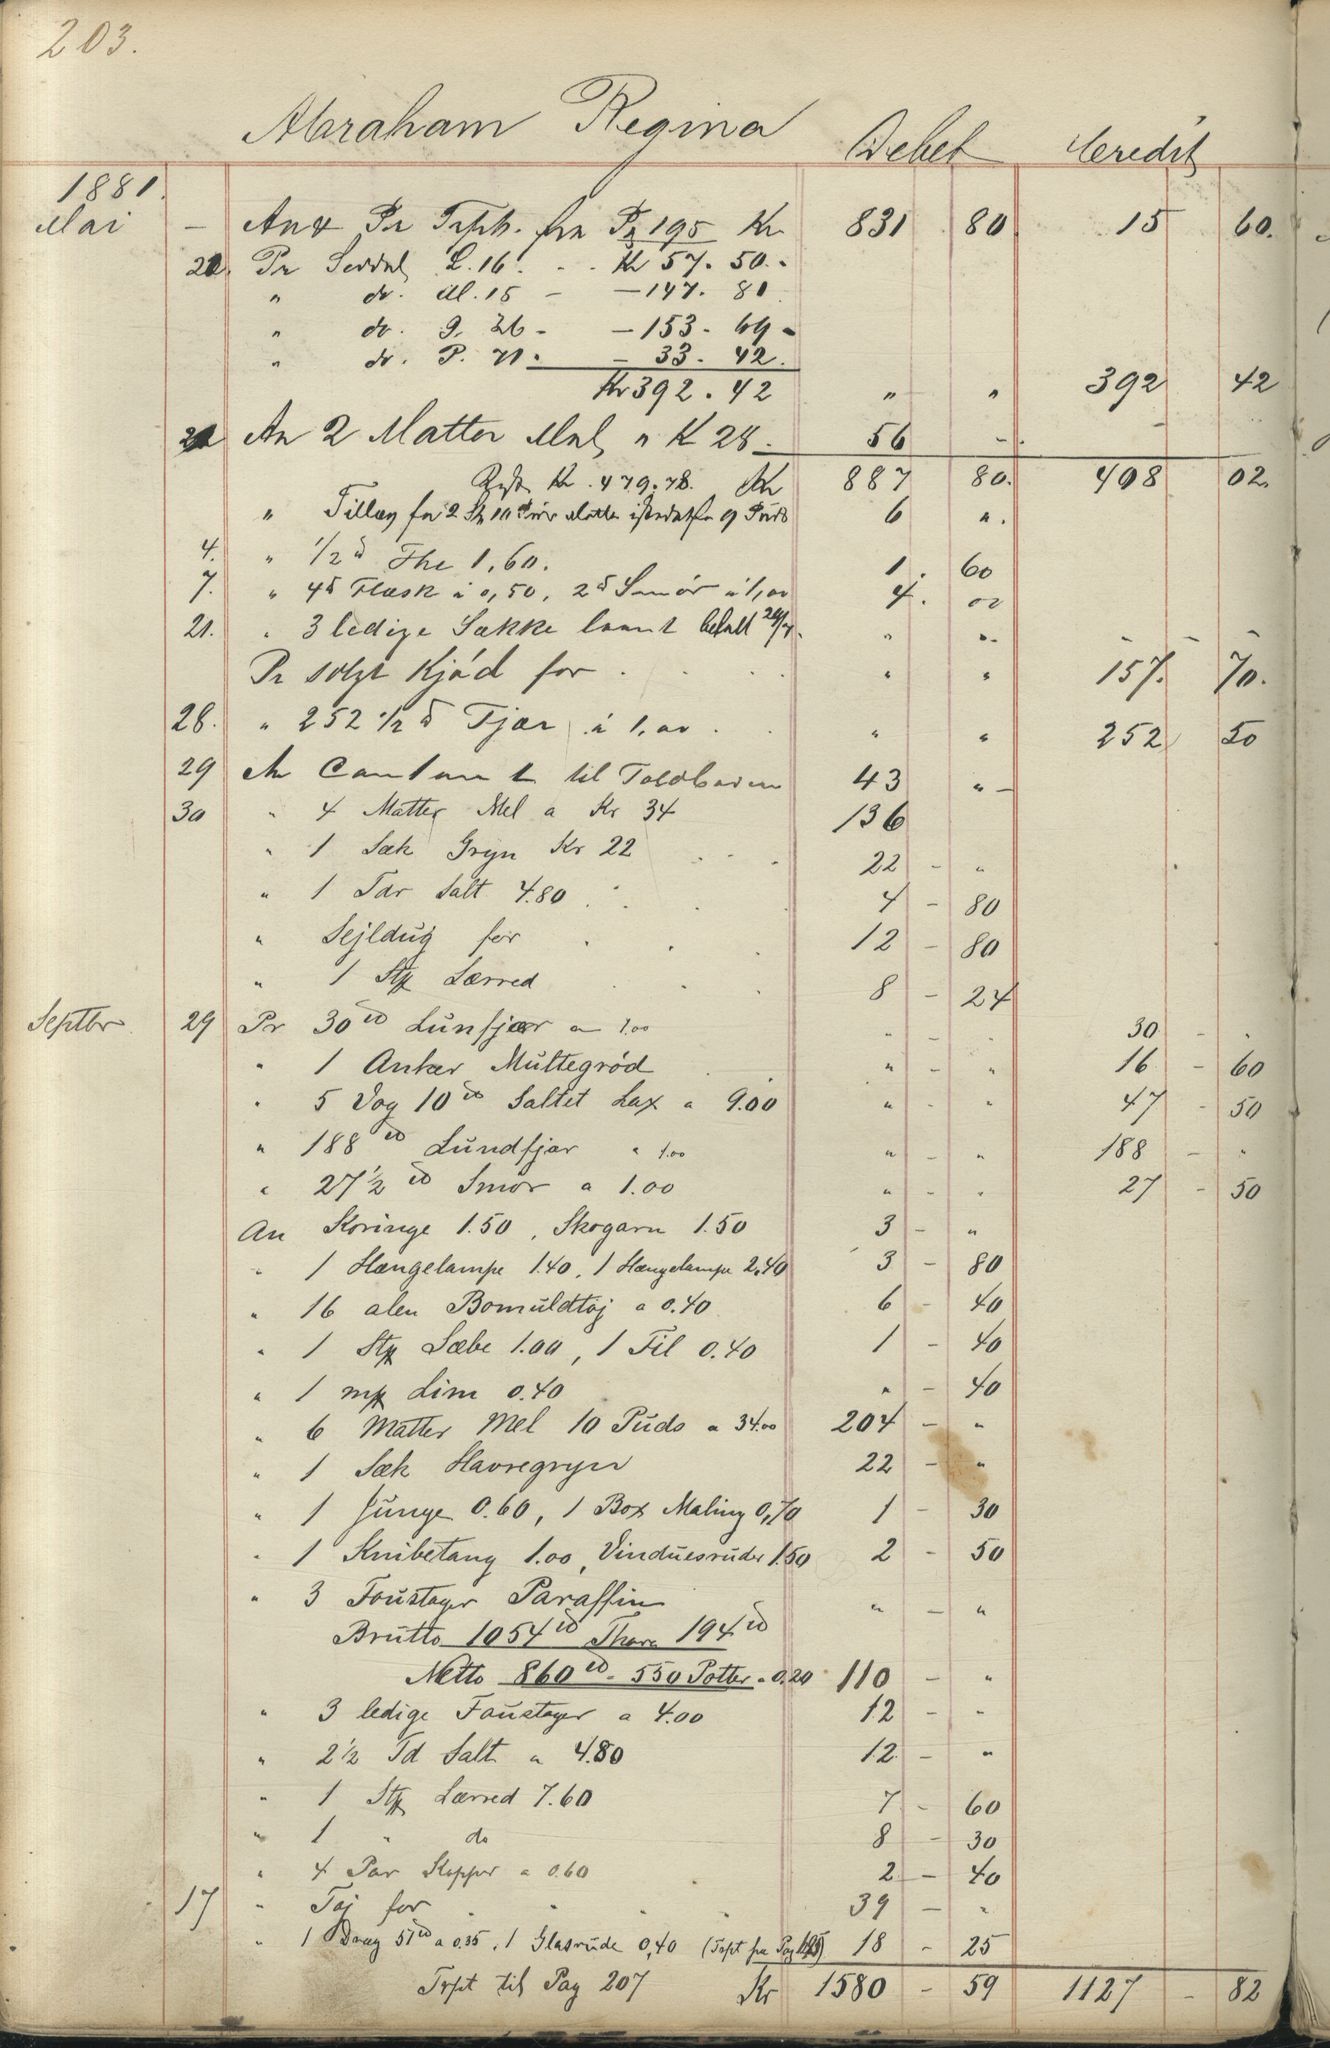 203.
Abraham Regina Debet Credit
1881.
Mai - An & Pr Trspt. fra Pg 195 Kr 831 80. 15 60.
22. Pr Seddel L. 16. Kr 57. 50.
" do. M. 15 - - 147. 81
" do. 9. 26 - - 153. 69
" do. P. 71. - 33. 42.
Kr 392. 42 " " 392 42
An 2 Matter Mel a K 28. 56 -
Rest Kr. 479.78. Kr 887 80. 408 02.
" Tillæg for 2 Stk 10 Puds Matter istedetfor 9 Puds 6 ".
4. " 1/2 ℔ The 1,60. 1. 60
7. " 4 ℔ Flæsk a 0,50, 2 ℔ Smør a 1,00 4. 00
21. " 3 ledige Sække laant betalt " "
Pr solgt Kjød for " " 157. 70.
28. " 252 1/2 ℔ Fjær a 1,00 " " 252 50
29 An Contant til Toldboden 43 " -
30 " 4 Matter Mel a Kr 34 136
" 1 Sæk Gryn Kr 22 22 - "
" 1 Tdr Salt 4.80 4 - 80
" Sejldug for 12 - 80
" 1 Stk Lærred 8 - 24
Septbr 29 Pr 30 ℔ Lunfjær a 1.00 " - " 30 - "
" 1 Anker Multegrød " - " 16 - 60
" 5 Vog 10 ℔ Saltet Lax a 9.00 " - " 47 - 50
" 188 ℔ Lundfjær a 1.00 " - " 188 - "
" 27 1/2 ℔ Smør a 1.00 " - " 27 - 50
An Koringe 1.50, Skogarn 1.50 3 - "
" 1 Hængelampe 1.40, 1 Hængelampe 2.40 3 - 80
" 16 alen Bomuldtøj a 0.40 6 - 40
" 1 Stk Sæbe 1.00, 1 Fil 0.40 1 - 40
" 1 mk Lim 0.40 " - 40
" 6 Matter Mel 10 Puds a 34.00 204 - "
" 1 Sæk Havregryn 22 - "
" 1 Junge 0.60, 1 Box Maling 0,70 1 - 30
" 1 Knibetang 1.00, Vinduesruder 1.50 2 - 50
" 3 Foustager Paraffin " - "
Brutto 1054 ℔ Thara 194 ℔
Netto 860 ℔ - 550 Potter a 0.20 110 - "
" 3 ledige Foustager a 4.00 12 - "
" 2 1/2 Td Salt a 4.80 12 - "
" 1 Stk Lærred 7.60 7 - 60
" 1 " do 8 - 30
" 4 Par Kopper a 0.60 2 - 40
17 " Tøj for 39 - "
" 1 Dræg 51 ℔ a 0.35, 1 Glasrude 0,40 (Trspt fra Pag 195) 18 - 25
Trspt til Pag 207 Kr 1580 - 59 1127 - 82